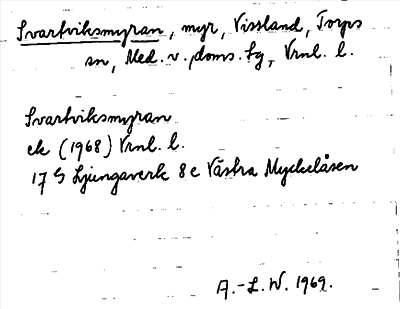 Svartviksmyran, myr, Vissland, Torps
sn, Med. v., doms. sg, Vrnl. l.
Svartviksmyran
ek (1968) Vrnl. l.
17 G Ljungaverk 8 e Västra Myckelåsen
A.-L. W. 1969.